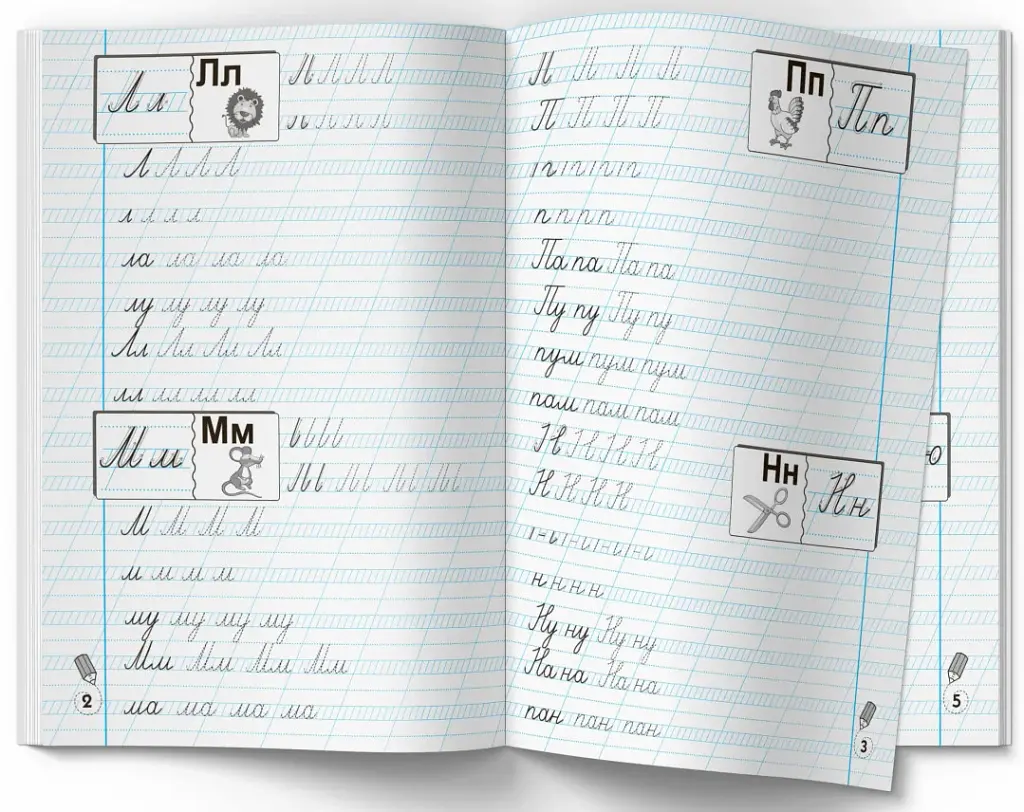 Л л Лл
Л Л Л Л
л л л л
ла ла ла ла
лу лу лу лу
Лл Лл Лл Лл
лл лл лл лл лл
М м Мм
М М М М
м м м м
му му му му
Мм Мм Мм Мм
ма ма ма ма
2
Пп Пп
П П П П
п п п п
Па па Па па
Пу пу Пу пу
пум пум пум
пам пам пам
Нн Нн
Н Н Н Н
н н н н
Ну ну Ну ну
На на На на
пан пан пан
3
ю
5